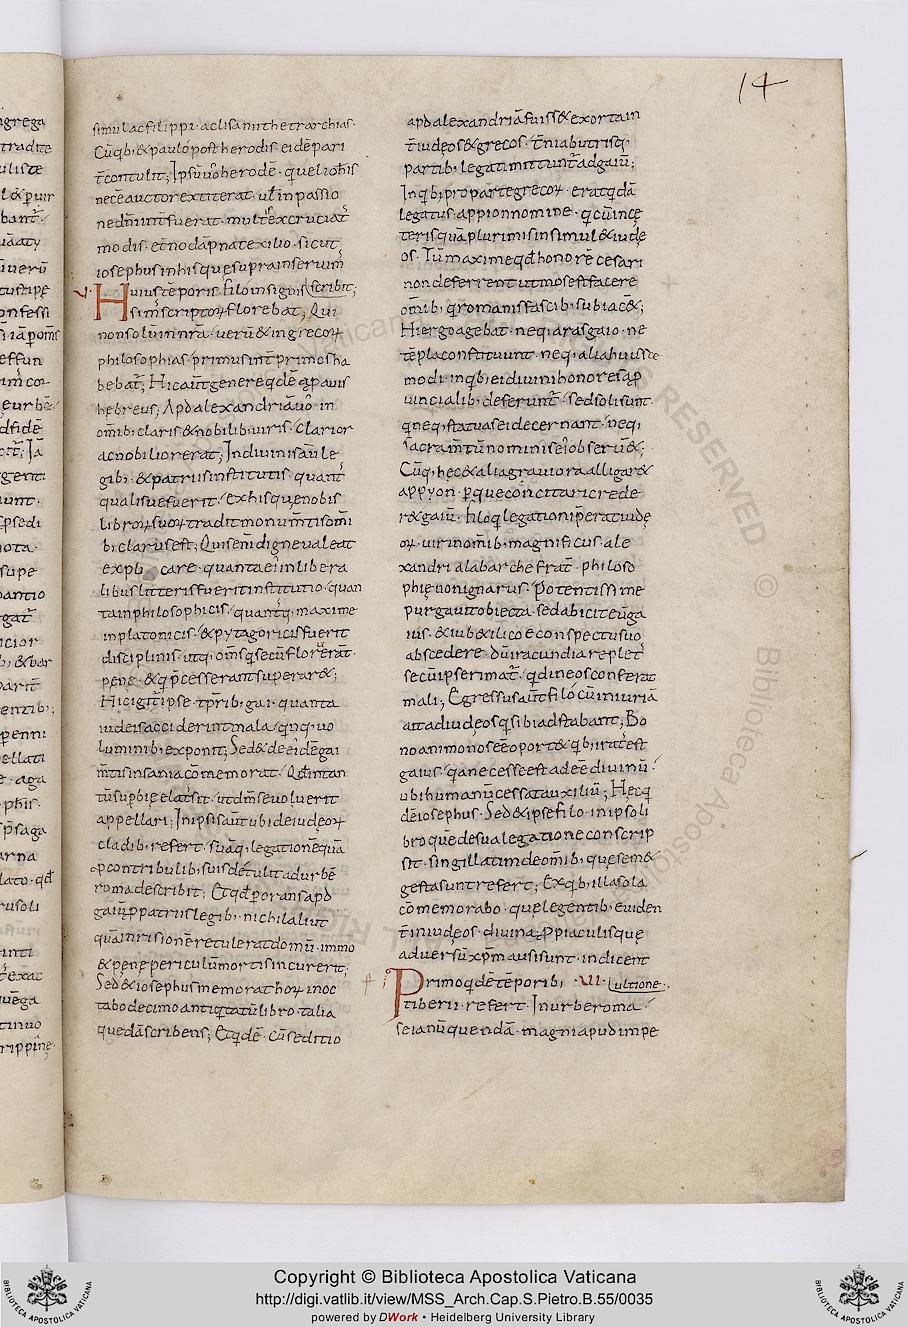 14
simul ac filippi · ac lisanii thetrarchias ·
Cūq̄b · & paulo post herodis · eidē pari
t̄ contulit; Ipsū ū̊ herodē · qᵉ uel ioh̄is
necē auctor extiterat · ut̄ in passio
ne dn̄i int̄fuerat · multis excruciat̄
modis · et̄no dāpnat exilio · sicut
iosephus in his que supra inseruim̄
v · Huius tēporis · filo insignis scribit;
sim̄ scriptoꝝ florebat; Qui
non solum in nr̄a · uerū & in grecoꝝ
philosophia · primus int̄ primos ha
bebat̄; Hic aut̄ genere q̄dē ꝓ auis
hebreus; Apd alexandriā ūo · in
om̄ib; claris & nobilib; uiris · clarior
ac nobilior erat; In diuinis aū le
gib; & patriis institutis · quant̄
qualisue fuerit / ex his quę nobis
libroꝝ suoꝝ tradit monum̄tis om̄i
b; clarus est; Qui sem̄ digne ualeat
expli care · quanta ei in libera
libus litteris fuerit institutio · quan
ta in philosophicis / quantq̄ · maxime
in platonicis / & pytagoricis fuerit
disciplinis · utq · om̄s q secū floruerāt ·
pene · & q p̄cesserant superar&;
Hic igit̄ ipse · tp̄rib; gai · quanta
iudeis acciderint mala / qīnq; uo
luminib; exponit; Sed & de eidē gai
m̄tis insania cōmemorat / Qd̄ intan
tū supbię elat̄ sit / ut dm̄ se uoluerit
appellari; In ipsis aut̄ ubi de iudęoꝝ
cladib; refert · suāq; legationē quā
ꝓ contribulib; suis detulit ad urbē
roma describit; Et qd̄ ꝓ orans apd
gaiū ꝓ patriis legib; nichil aliut
quā inrisionē retulerat domū · immo
& pene periculū mortis incurerit;
Sed & iosephus memorat hoꝝ in oc
tabo decimo antiq̄tatū libro · talia
quedā scribens; Et q̄dē · cū seditio
apd alexandriā fuiss& exorta in
t̄ iudęos & grecos · t̄ni ab utrisq;
partib; legati mittunt̄ ad gaiū;
In qb; pro parte grecoꝝ · erat q̄dā
legatus · appion nomine · q cū in ce
teris quā plurimis insimul & iudę
os · Tū maxime qd̄ honorē cesari
non deferrent ut mos est facere
om̄ib; q romanis fascib; subiac&;
Hi ergo agebat̄ · neq; aras gaio · ne
tēpla constituunt · neq; alia huiusce
modi · in qb; ei diuini honores a ꝓ
uincialib; deferunt̄ / sed soli sunt ·
q neq; statuas ei decernant / neq;
sacram̄tū nomini sei obseru&;
Cūq; hec & alia grauiora alligar&
appyon · p que concitari crede
r& gaiū · filo q legationi p̄erat iudę
oꝝ · uir in om̄ib; magnificus · ale
xandri alabarche frat̄ · philoso
phię non ignarus / Potentissime
purgauit obiecta · sed abicit eū ga
ius · & iub& ilico e conspectu suo
abscedere · dū iracundia replet̄
secū ipse rimat̄ · qd in eos conferat
mali; Egressus aut̄ filo cū iniuriā
ait ad iudęos q sibi adstabant; Bo
no animo nos eē oport& qb; irat̄ est
gaius / q̄a necesse est adeē diuinū /
ubi humanū cessat auxiliū; Hec q̄
dē iosephus · Sed & ipse filo · in ipso li
bro quē de sua legatione conscrip
sit · singillatim de om̄ib; quę sem&
gesta sunt refert; Ex qb; illa sola
cōmemorabo · que legentib; euiden
t̄ in iudęos · diuina ꝓ piaculis quę
aduersū xp̄m ausi sunt · indicent
Primo q̄dē tēporib; · VI · ultione ·
tiberii · refert · In urbe roma /
seianū quendā · magni apud impe
Copyright © Biblioteca Apostolica Vaticana
http://digi.vatlib.it/view/MSS_Arch.Cap.S.Pietro.B.55/0035
powered by DWork • Heidelberg University Library